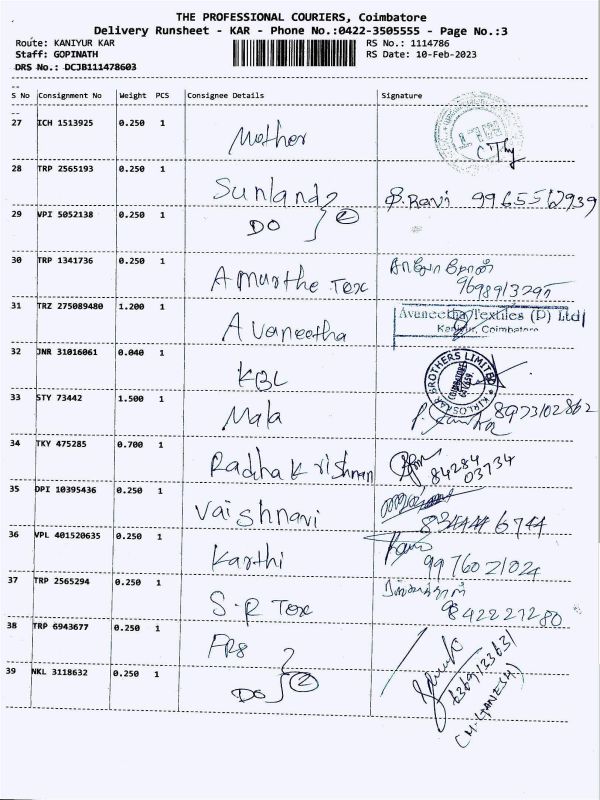 THE PROFESSIONAL COURIERS, Coimbatore
Delivery Runsheet - KAR - Phone No.:0422-3505555 - Page No.:3
Route: KANIYUR KAR RS No.: 1114786
Staff: GOPINATH RS Date: 10-Feb-2023
DRS No.: DCJB111478603
S No Consignment No Weight PCS Consignee Details Signature
27 ICH 1513925 0.250 1 Mother
28 TRP 2565193 0.250 1 Sunland B.Ravi 9965562939
29 VPI 5052138 0.250 1 DO 2
30 TRP 1341736 0.250 1 Amurthe Tex
31 TRZ 275089480 1.200 1 Avaneetha Avaneetha Textiles (P) Ltd
Kaniyur, Coimbatore
32 JNR 31016061 0.040 1 KBL KIRLOSKAR BROTHERS LIMITED
33 STY 73442 1.500 1 Mala 8973102862
34 TKY 475285 0.700 1 Radhakrishnan 84284
03734
35 DPI 10395436 0.250 1 Vaishnavi
36 VPL 401520635 0.250 1 Karthi 9976021024
37 TRP 2565294 0.250 1 S.R Tex 9842221280
38 TRP 6943677 0.250 1
39 NKL 3118632 0.250 1 DO 2 6369123631
(M.GANESH)